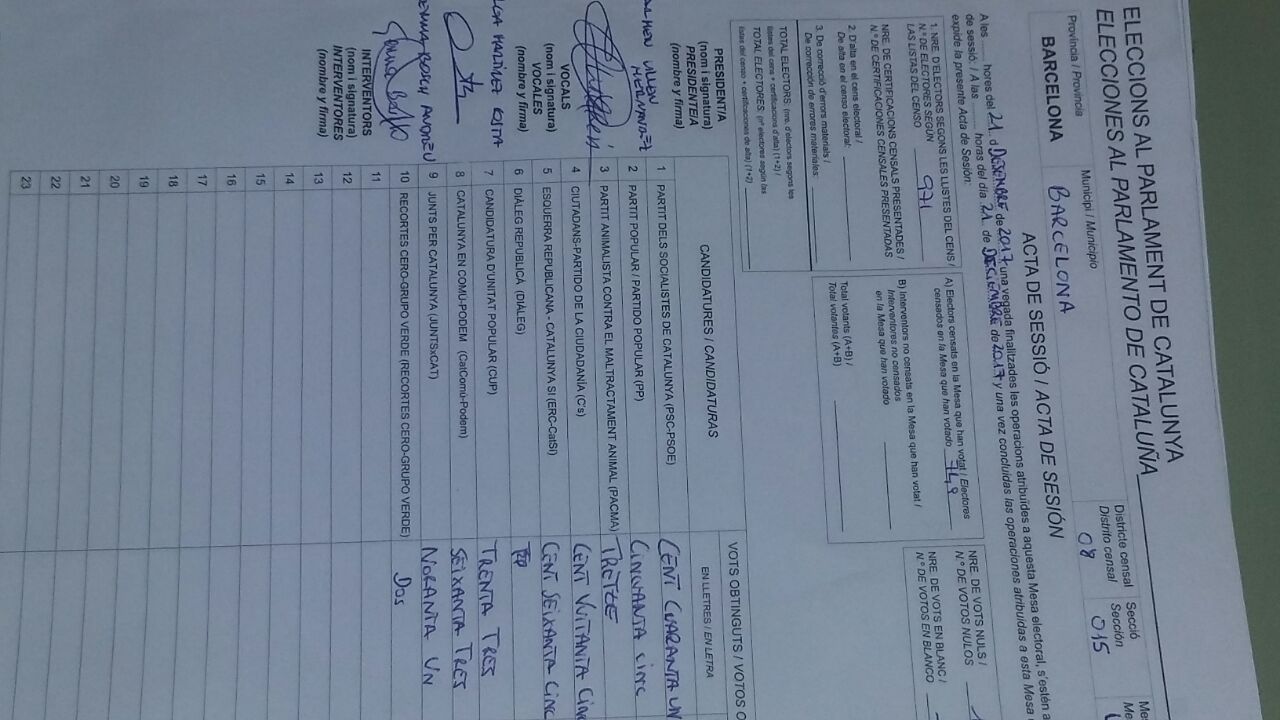 ELECCIONS AL PARLAMENT DE CATALUNYA
ELECCIONES AL PARLAMENTO DE CATALUÑA
Província / Provincia
BARCELONA
Municipi / Municipio
BARCELONA
Districte censal
Distrito censal
08
Secció
Sección
015
ACTA DE SESSIÓ / ACTA DE SESIÓN
A les ...... hores del 21 d DESEMBRE de 2017 una vegada finalitzades les operacions atribuïdes a aquesta Mesa electoral, s'estén a
de sessió. / A las ...... horas del día 21 de DECIEMBRE de 2017 y una vez concluidas las operaciones atribuidas a esta Mesa
expide la presente Acta de Sesión:
1. NRE D'ELECTORS SEGONS LES LLISTES DEL CENS /
N.º DE ELECTORES SEGÚN
LAS LISTAS DEL CENSO 971
NRE. DE CERTIFICACIONS CENSALS PRESENTADES /
N.º DE CERTIFICACIONES CENSALES PRESENTADAS
2. D'alta en el cens electoral /
De alta en el censo electoral:
3. De correcció d'errors materials /
De corrección de errores materiales:
TOTAL ELECTORS: (nre. d'electors segons les
llistes del cens + certificacions d'alta) (1+2) /
TOTAL ELECTORES: (nº electores según las
listas del censo + certificaciones de alta) (1+2)
A) Electors censats en la Mesa que han votat / Electores
censados en la Mesa que han votado 749
B) Interventors no censats en la Mesa que han votat /
Interventores no censados
en la Mesa que han votado
Total votants (A+B) /
Total votantes (A+B)
NRE. DE VOTS NULS /
N.º DE VOTOS NULOS
NRE. DE VOTS EN BLANC /
N.º DE VOTOS EN BLANCO
PRESIDENT/A
(nom i signatura)
PRESIDENTE/A
(nombre y firma)
VOCALS
(nom i signatura)
VOCALES
(nombre y firma)
INTERVENTORS
(nom i signatura)
INTERVENTORES
(nombre y firma)
CANDIDATURES / CANDIDATURAS
VOTS OBTINGUTS / VOTOS O
EN LLETRES / EN LETRA
1 PARTIT DELS SOCIALISTES DE CATALUNYA (PSC-PSOE) CENT QUARANTA UN
2 PARTIT POPULAR / PARTIDO POPULAR (PP) CINQUANTA CINC
3 PARTIT ANIMALISTA CONTRA EL MALTRACTAMENT ANIMAL (PACMA) TRETZE
4 CIUTADANS-PARTIDO DE LA CIUDADANÍA (C's) CENT VUITANTA CINC
5 ESQUERRA REPUBLICANA - CATALUNYA SÍ (ERC-CatSÍ) CENT SEIXANTA CINC
6 DIÀLEG REPUBLICÀ (DIÀLEG)
7 CANDIDATURA D'UNITAT POPULAR (CUP) TRENTA TRES
8 CATALUNYA EN COMÚ-PODEM (CatComú-Podem) SEIXANTA TRES
9 JUNTS PER CATALUNYA (JUNTSxCAT) NORANTA UN
10 RECORTES CERO-GRUPO VERDE (RECORTES CERO-GRUPO VERDE) DOS
11
12
13
14
15
16
17
18
19
20
21
22
23